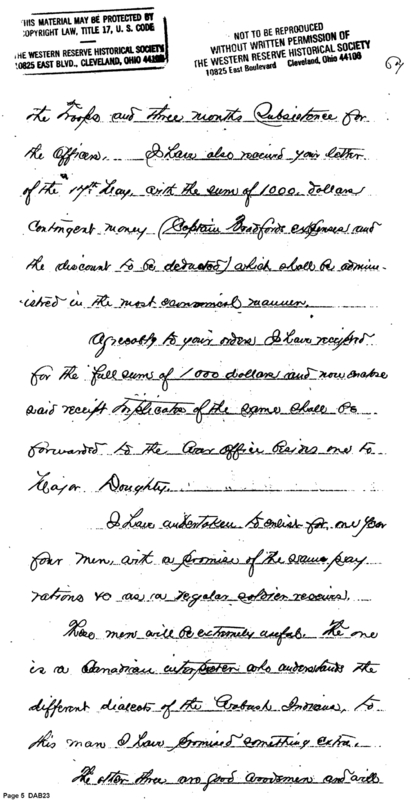 THIS MATERIAL MAY BE PROTECTED BY
COPYRIGHT LAW, TITLE 17, U. S. CODE
THE WESTERN RESERVE HISTORICAL SOCIETY
10825 EAST BLVD., CLEVELAND, OHIO 44106
NOT TO BE REPRODUCED
WITHOUT WRITTEN PERMISSION OF
THE WESTERN RESERVE HISTORICAL SOCIETY
10825 East Boulevard Cleveland, Ohio 44106
the troops and three months Subsistence for
the Officers. I have also received your letter
of the 17th May, with the sum of 1000. dollars
Contingent money (Captain Bradfords expenses and
the discount to be deducted) which shall be admin-
-istred in the most economical manner.
Agreeably to your orders I have receipted
for the full sum of 1000 dollars and now enclose
said receipt triplicates of the same shall be
forwarded to the War Office besides one to
Major Doughty.
I have undertaken to enlist for one year
four men, with a promise of the same pay
rations &c as a regular soldier receives.
These men will be extremely useful. The one
is a Canadian interpreter who understands the
different dialects of the Wabash Indians, to
this man I have promised something extra.
The other three are good woodsmen and will
Page 5 DAB23